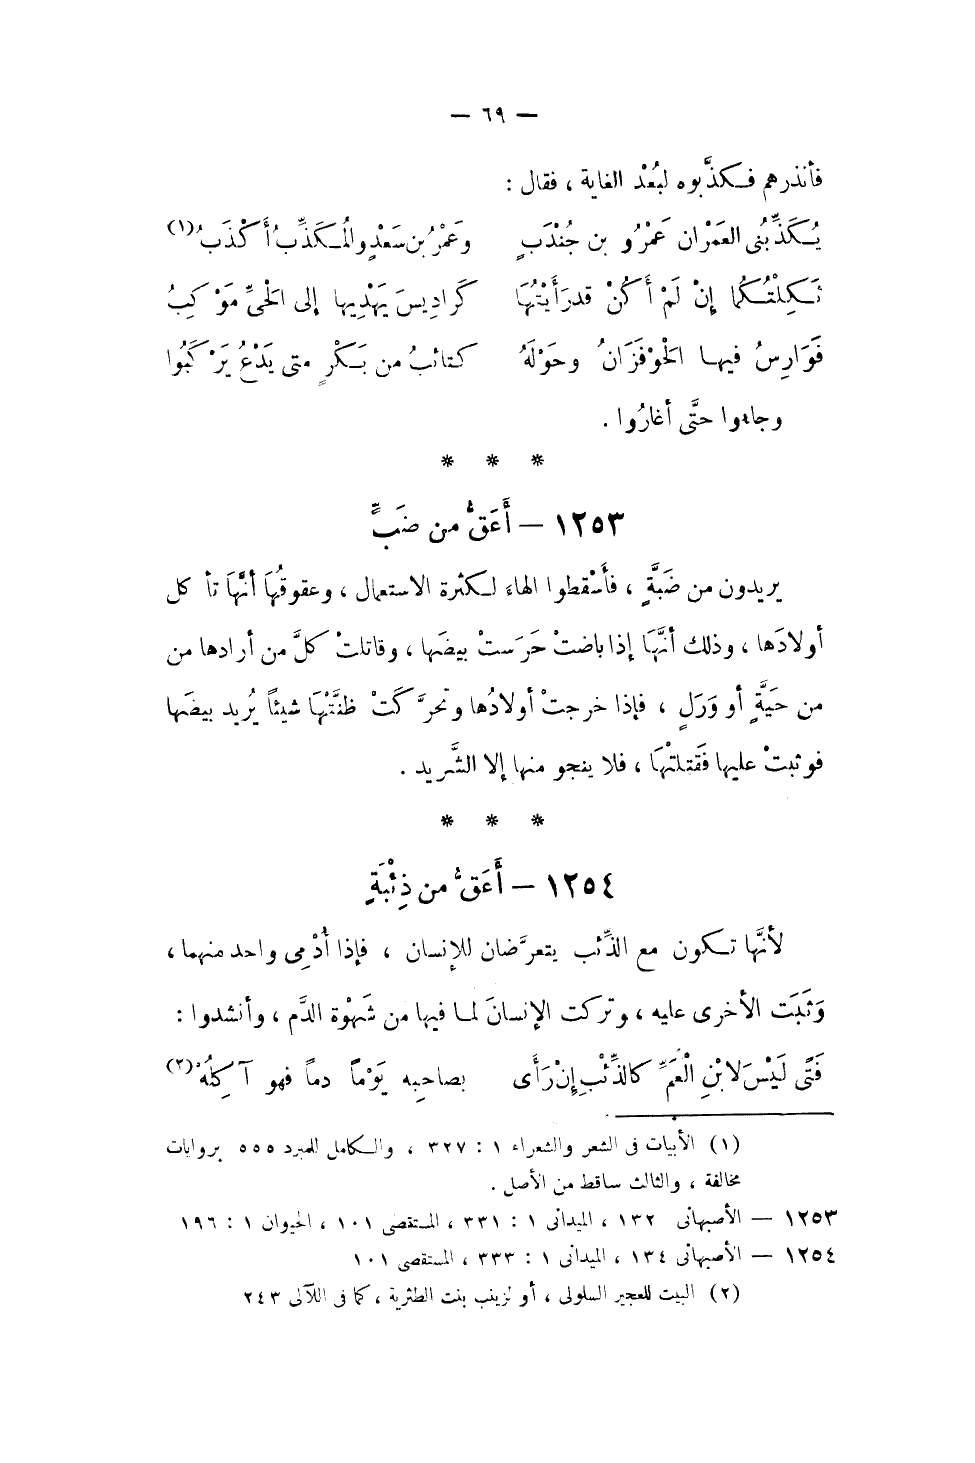 — ٦٩ —
فأنذرهم فكذَّبوه لبُعْد الغاية ، فقال :
يُكَذِّبُنى العَمْران عَمْرُو بن جُنْدَبٍ وَعَمْرُ بن سَعْدٍ والمُكَذِّبُ أَكْذَبُ (١)
ثَكِلْتُكما إنْ لَمْ أَكُنْ قد رَأَيْتُهَا كَرادِيسَ يَهْدِيها إلى الحَىِّ مَوْكِبُ
فَوَارِسُ فيها الحَوْفَزَانُ وحَوْلَهُ كتائبُ من بَكْرٍ متى يَدْعُ يَرْكَبُوا
وجاءوا حتَّى أغارُوا .
* * *
١٢٥٣ — أَعَقُّ من ضَبٍّ
يريدون من ضَبَّةٍ ، فأَسْقطوا الهاءَ لكثرة الاستعمال ، وعقوقُهَا أنَّهَا تأكل
أولادَها ، وذلك أنَّهَا إذا باضتْ حَرَستْ بيضَها ، وقاتلتْ كلَّ من أرادها من
من حَيَّةٍ أو وَرَلٍ ، فإذا خرجتْ أولادُها وتحرَّكَتْ ظنَّتْهَا شيئاً يُريد بيضَها
فوثبتْ عليها فَقَتلتْهَا ، فلا ينجو منها إلا الشَّريد .
* * *
١٢٥٤ — أَعَقُّ من ذِئْبَةٍ
لأنَّها تكون مع الذِّئب يتعرَّضان للإنسان ، فإذا أُدْمِى واحد منهما ،
وَثَبَت الأخرى عليه ، وتركت الإنسانَ لما فيها من شَهْوة الدَّم ، وأنشدوا :
فَتًى لَيْسَ لابْنِ الْعَمِّ كالذِّئْبِ إِنْ رَأَى بصاحبِه يَوْماً دماً فهو آكِلُهْ (٢)
(١) الأبيات فى الشعر والشعراء ١ : ٣٢٧ ، والكامل للمبرد ٥٥٥ بروايات
مخالفة ، والثالث ساقط من الأصل .
١٢٥٣ — الأصبهانى ١٣٢ ، الميدانى ١ : ٣٣١ ، المستقصى ١٠١ ، الحيوان ١ : ١٩٦
١٢٥٤ — الأصبهانى ١٣٤ ، الميدانى ١ : ٣٣٣ ، المستقصى ١٠١
(٢) البيت للعجير السلولى ، أو لزينب بنت الطثرية ، كما فى اللآلى ٢٤٣